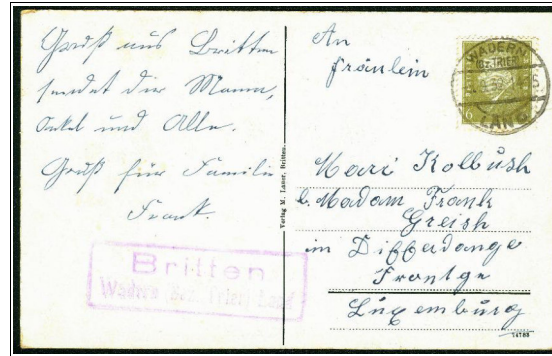 Gruß aus Britten
sendet die Mama,
Onkel und Alle.
Gruß für Familie
Frank.
Britten
Wadern Bez. Trier Land
Verlag M. Laner, Britten.
An
Fräulein
WADERN
(BZ. TRIER)
LAND
6
Mari Kolbush
b. Madam Frank
Greish
im Differdange
Luxemburg
14786